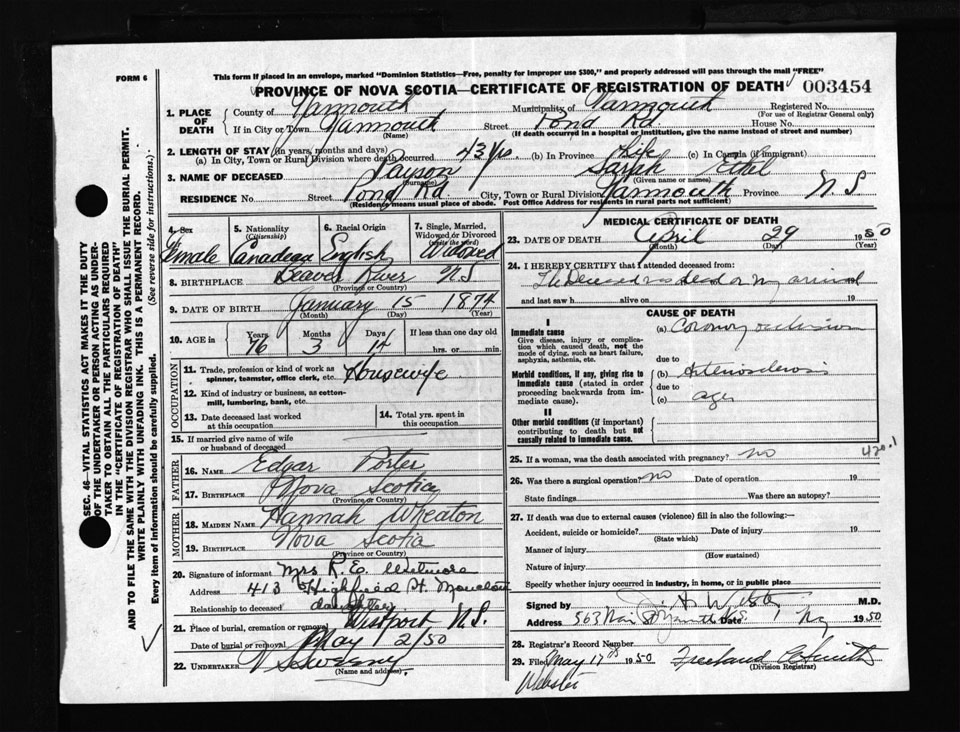 FORM 6
This form if placed in an envelope, marked "Dominion Statistics—Free, penalty for improper use $300," and properly addressed will pass through the mail "FREE"
PROVINCE OF NOVA SCOTIA—CERTIFICATE OF REGISTRATION OF DEATH 003454
1. PLACE OF DEATH County of Yarmouth Municipality of Yarmouth Registered No.
(For use of Registrar General only)
If in City or Town Yarmouth Street Pond Rd. House No.
(Name) (If death occurred in a hospital or institution, give the name instead of street and number)
2. LENGTH OF STAY (in years, months and days)
(a) In City, Town or Rural Division where death occurred 43 yrs. (b) In Province Life (c) In Canada (if immigrant)
3. NAME OF DECEASED Payson Sarah Ethel
(Surname) (Given name or names)
RESIDENCE No. Street Pond Rd City, Town or Rural Division Yarmouth Province N S
(Residence means usual place of abode. Post Office Address for residents in rural parts not sufficient)
4. Sex Female
5. Nationality (Citizenship) Canadian
6. Racial Origin English
7. Single, Married, Widowed or Divorced (write the word) Widowed
8. BIRTHPLACE Beaver River N S
(Province or Country)
9. DATE OF BIRTH January 15 1874
(Month) (Day) (Year)
10. AGE in Years 76 Months 3 Days 14 If less than one day old
hrs. or min.
OCCUPATION
11. Trade, profession or kind of work as spinner, teamster, office clerk, etc. Housewife
12. Kind of industry or business, as cotton-mill, lumbering, bank, etc.
13. Date deceased last worked at this occupation
14. Total yrs. spent in this occupation
15. If married give name of wife or husband of deceased
FATHER
16. NAME Edgar Porter
17. BIRTHPLACE Nova Scotia
(Province or Country)
MOTHER
18. MAIDEN NAME Hannah Wheaton
19. BIRTHPLACE Nova Scotia
(Province or Country)
20. Signature of informant Mrs R. E. Wetmore
Address 413 Highfield St. Moncton
Relationship to deceased daughter
21. Place of burial, cremation or removal Westport N.S.
Date of burial or removal May 2/50
22. UNDERTAKER V. Sweeny
(Name and address)
MEDICAL CERTIFICATE OF DEATH
23. DATE OF DEATH April 29 1950
(Month) (Day) (Year)
24. I HEREBY CERTIFY that I attended deceased from:
The Deceased was dead on my arrival
and last saw h alive on 19
CAUSE OF DEATH
I
Immediate cause
Give disease, injury or complication which caused death, not the mode of dying, such as heart failure, asphyxia, asthenia, etc.
(a) Coronary occlusion
due to
Morbid conditions, if any, giving rise to immediate cause (stated in order proceeding backwards from immediate cause).
(b) Arteriosclerosis
due to
(c) age
II
Other morbid conditions (if important) contributing to death but not causally related to immediate cause.
420.1
25. If a woman, was the death associated with pregnancy? no
26. Was there a surgical operation? no Date of operation 19
State findings Was there an autopsy?
27. If death was due to external causes (violence) fill in also the following:—
Accident, suicide or homicide? Date of injury 19
(State which)
Manner of injury
(How sustained)
Nature of injury
Specify whether injury occurred in industry, in home, or in public place
Signed by Webster M.D.
Address 563 Main St Yarmouth N.S. Date 1950
28. Registrar's Record Number
29. Filed May 17th 1950 Freeland C Smith
(Division Registrar)
Webster
SEC. 46—VITAL STATISTICS ACT MAKES IT THE DUTY
OF THE UNDERTAKER OR PERSON ACTING AS UNDER-
TAKER TO OBTAIN ALL THE PARTICULARS REQUIRED
IN THE "CERTIFICATE OF REGISTRATION OF DEATH"
AND TO FILE THE SAME WITH THE DIVISION REGISTRAR WHO SHALL ISSUE THE BURIAL PERMIT.
WRITE PLAINLY WITH UNFADING INK. THIS IS A PERMANENT RECORD.
Every item of Information should be carefully supplied. (See reverse side for instructions.)